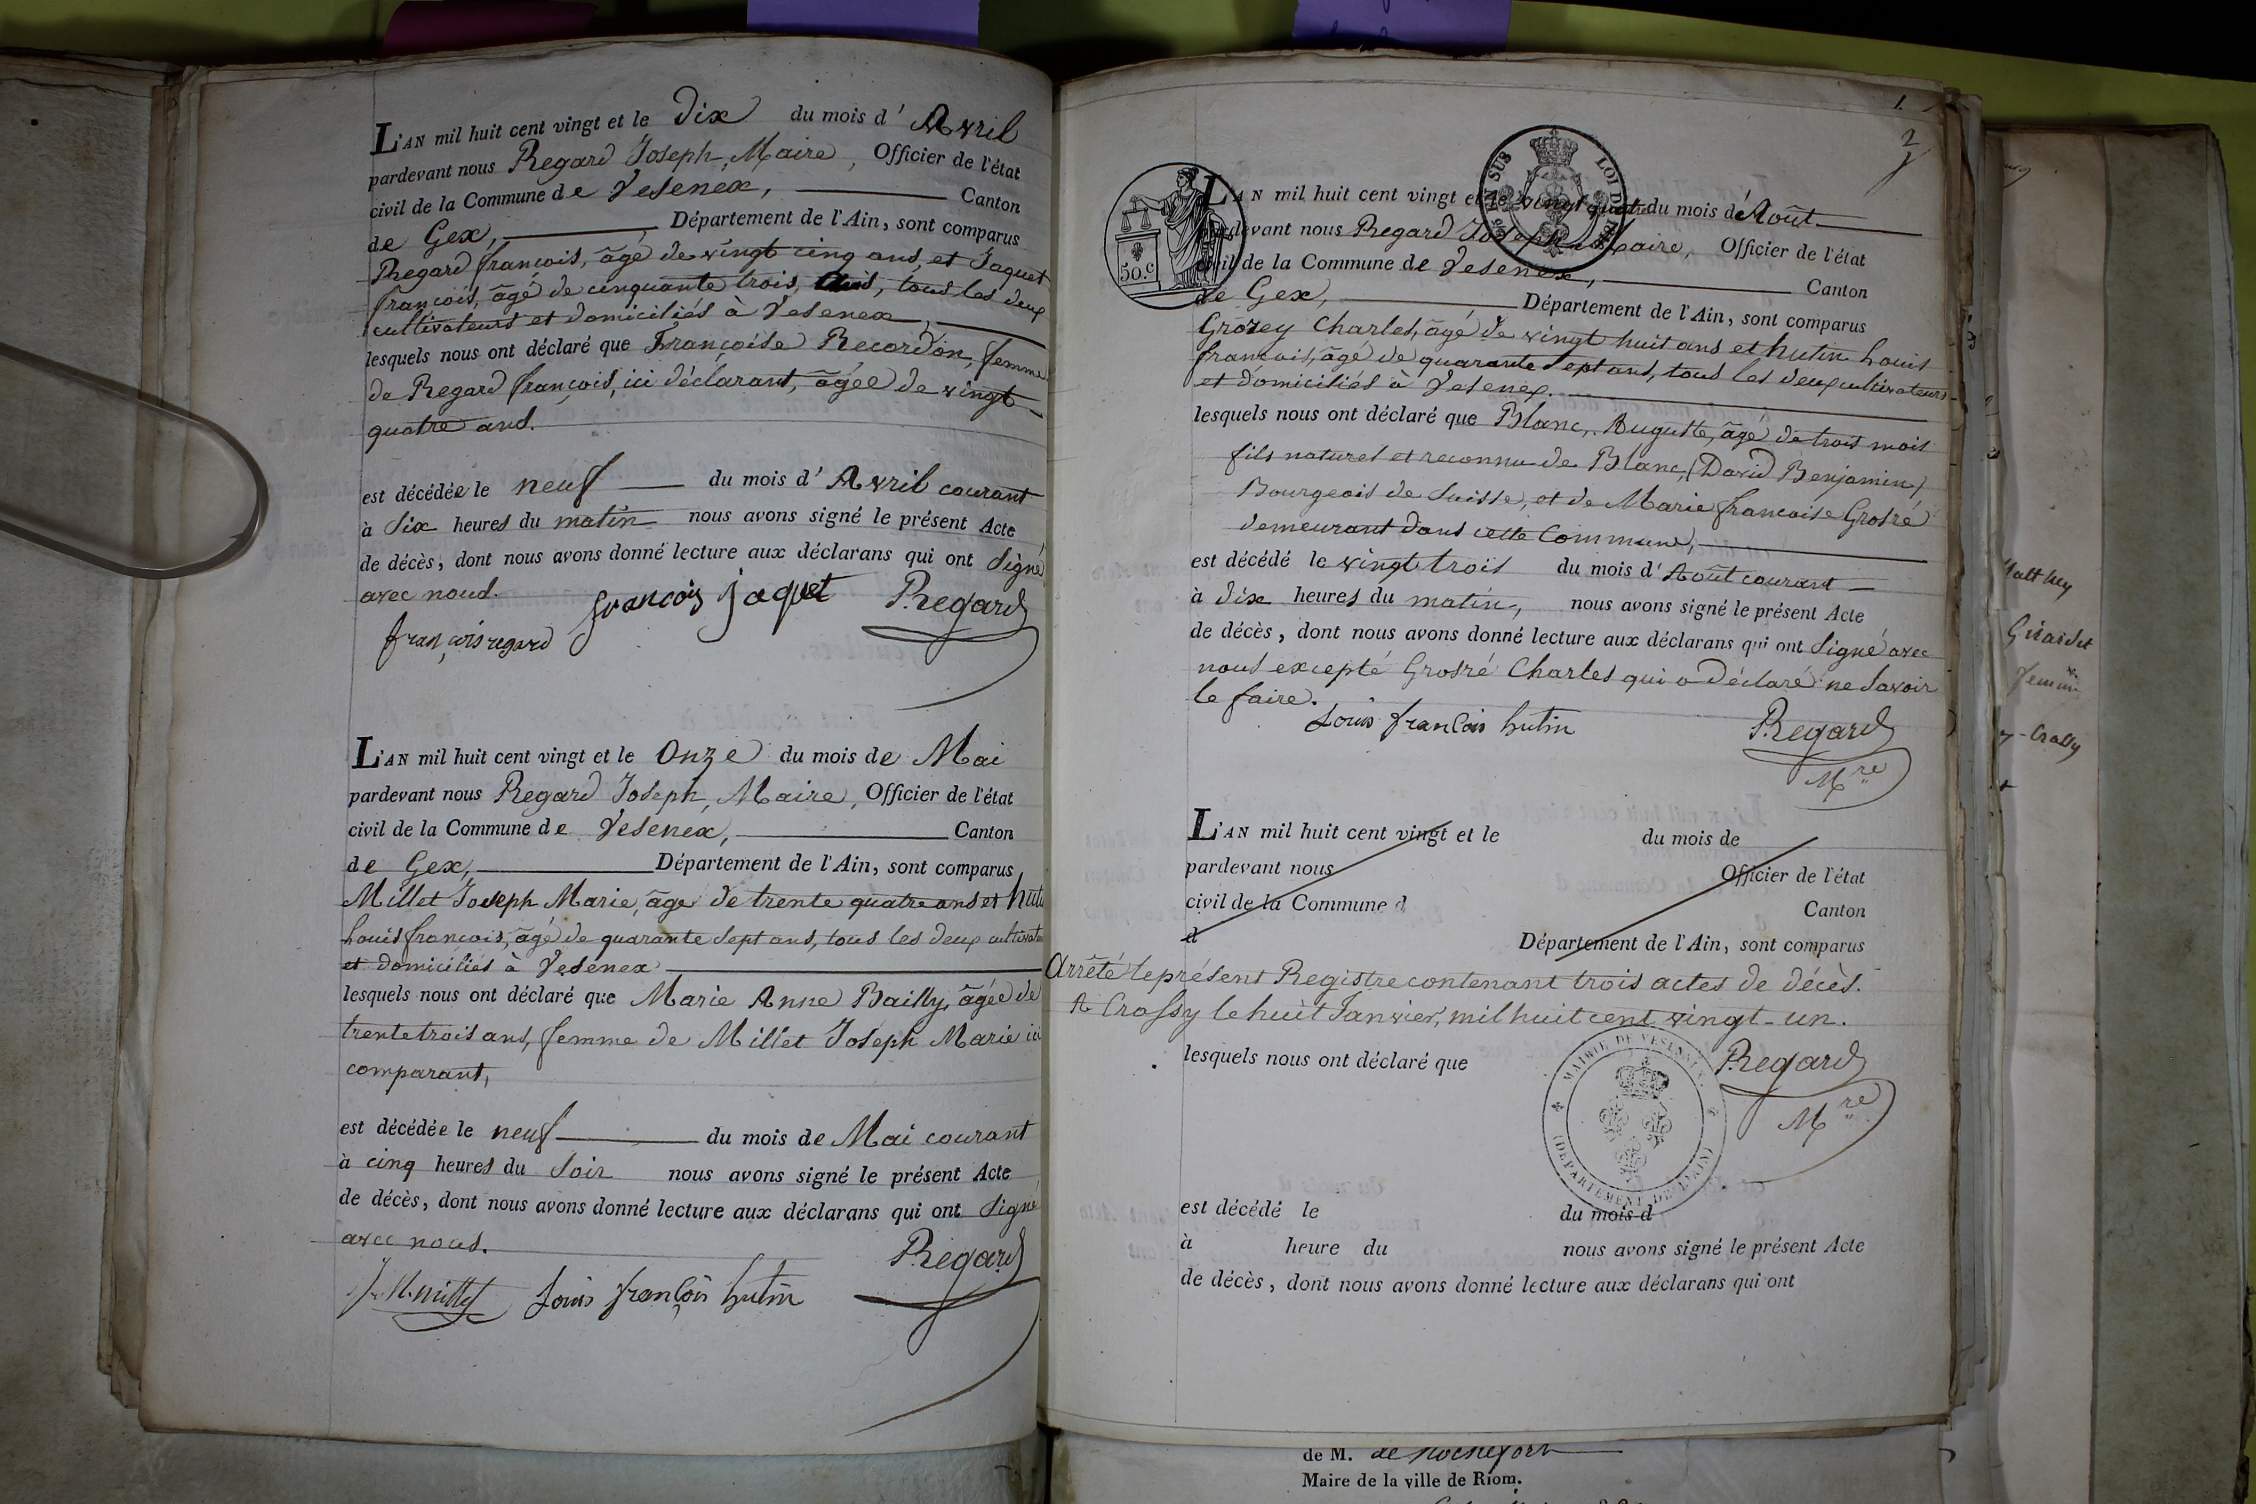 L'AN mil huit cent vingt et le Dix du mois d'Avril
pardevant nous Regard Joseph, Maire, Officier de l'état
civil de la Commune de Vesenex, Canton
de Gex, Département de l'Ain, sont comparus
Regard françois, âgé de vingt cinq ans, et Jaquet
françois, âgé de cinquante trois, ans, tous les deux
cultivateurs et domiciliés à Vesenex,
lesquels nous ont déclaré que Françoise Recordon, femme
de Regard françois, ici déclarant, âgée de vingt
quatre ans.
est décédée le neuf du mois d'Avril courant
à Six heures du matin nous avons signé le présent Acte
de décès, dont nous avons donné lecture aux déclarans qui ont Signé
avec nous.
françois jaquet Regard
françois regard
L'AN mil huit cent vingt et le Onze du mois de Mai
pardevant nous Regard Joseph, Maire, Officier de l'état
civil de la Commune de Vesenex, Canton
de Gex, Département de l'Ain, sont comparus
Millet Joseph Marie, âgé de trente quatre ans et hutin
Louis françois, âgé de quarante Sept ans, tous les deux cultivateurs
et domiciliés à Vesenex
lesquels nous ont déclaré que Marie Anne Bailly, âgée de
trente trois ans, femme de Millet Joseph Marie ici
comparant,
est décédée le neuf du mois de Mai courant
à cinq heures du Soir nous avons signé le présent Acte
de décès, dont nous avons donné lecture aux déclarans qui ont Signé
avec nous.
Regard
Louis françois hutin
1.
2
50.c
LOI DE
L'AN mil huit cent vingt et le vingt quatre du mois d'Août
pardevant nous Regard Joseph Maire, Officier de l'état
civil de la Commune de Vesenex, Canton
de Gex, Département de l'Ain, sont comparus
Grozey Charles, âgé de vingt huit ans et hutin Louis
françois, âgé de quarante Sept ans, tous les deux cultivateurs
et domiciliés à Vesenex.
lesquels nous ont déclaré que Blanc, Auguste, âgé de trois mois
fils naturel et reconnu de Blanc, (David Benjamin)
Bourgeois de Suisse, et de Marie françoise Grosré
demeurant dans cette Commune,
est décédé le vingt trois du mois d'Août courant
à dix heures du matin, nous avons signé le présent Acte
de décès, dont nous avons donné lecture aux déclarans qui ont Signé avec
nous excepté Grosré Charles qui a déclaré ne Savoir
le faire.
Louis françois hutin Regard
Mre
L'AN mil huit cent vingt et le du mois de
pardevant nous Officier de l'état
civil de la Commune d Canton
d Département de l'Ain, sont comparus
Arrêté le présent Registre contenant trois actes de décès.
A Crassy le huit Janvier, mil huit cent vingt-un.
lesquels nous ont déclaré que Regard
Mre
MAIRIE DE VESENEX
(DEPARTEMENT DE L'AIN)
est décédé le du mois d
à heure du nous avons signé le présent Acte
de décès, dont nous avons donné lecture aux déclarans qui ont
Girardet
Crassy
de M. de Rochefort
Maire de la ville de Riom.